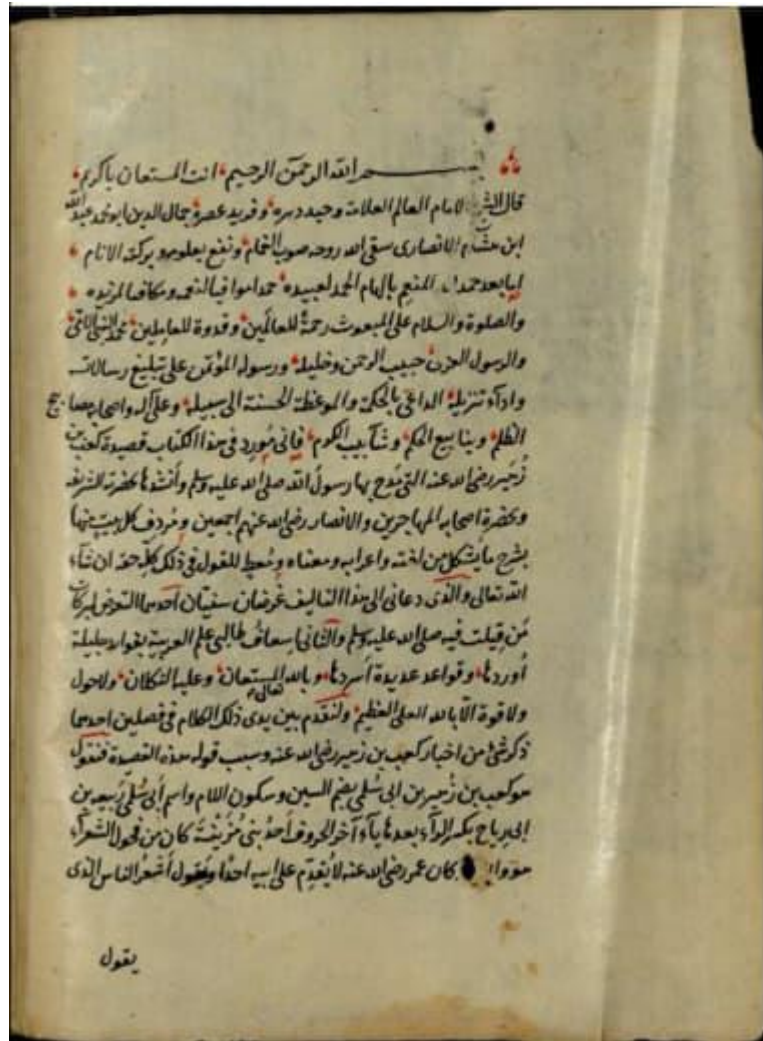 بسم الله الرحمن الرحيم انت المستعان يا كريم
قال الشيخ الامام العالم العلامة وحيد دهره وفريد عصره جمال الدين ابو محمد عبد الله
ابن هشام الانصارى سقى الله روحه صوب الغمام ونفع بعلومه وبركته الانام
اما بعد حمد الله المنعم بالهام الحمد لعبيده حمدا موافيا لنعمه ومكافيا لمزيده
والصلوة والسلام على المبعوث رحمة للعالمين وقدوة للعاملين محمد النبى الامى
والرسول العربى حبيب الرحمن وخليله ورسوله المؤتمن على تبليغ رسالته
واداء تنزيله الداعى بالحكمة والموعظة الحسنة الى سبيله وعلى آله واصحابه مصابيح
الظلم وينابيع الحكم وشآبيب الكرم فانى مورد فى هذا الكتاب قصيدة كعب بن
زُهَير رضى الله عنه التى مدح بها رسول الله صلى الله عليه وسلم وأنشدها بحضرته الشريفه
وبحضرة اصحابه المهاجرين والانصار رضى الله عنهم اجمعين ومُردِف كل بيت منها
بشرح ما يشكل من لغته واعرابه ومعناه ومُعطٍ للقول فى ذلك كلِّه حقه ان شآء
الله تعالى والذى دعانى الى هذا التاليف غرضان سنيان احدهما التعرض لبركات
مَن قيلت فيه صلى الله عليه وسلم والثانى اسعاف طالبى علم العربية بفوائد جليلة
أوردها وقواعد عديدة أسردها وبالله تعالى المستعان وعليه التكلان ولا حول
ولا قوة الا بالله العلى العظيم ولنقدم بين يدى ذلك الكلام فى فصلين احدهما
ذكر شئ من اخبار كعب بن زهير رضى الله عنه وسبب قوله هذه القصيدة فنقول
هو كعب بن زُهير بن ابى سُلمى بضم السين وسكون اللام واسم أبى سُلمى رَبيعه بن
ابى رياح بكسر الرآء بعدها يآء آخر الحروف أحدُ بنى مُزَيْنَةَ كان من فحول الشعرآء
هو وابوه كان عمر رضى الله عنه لا يُقدِّم على ابيه احدًا ويقول أشعرُ الناس الذى
يقول